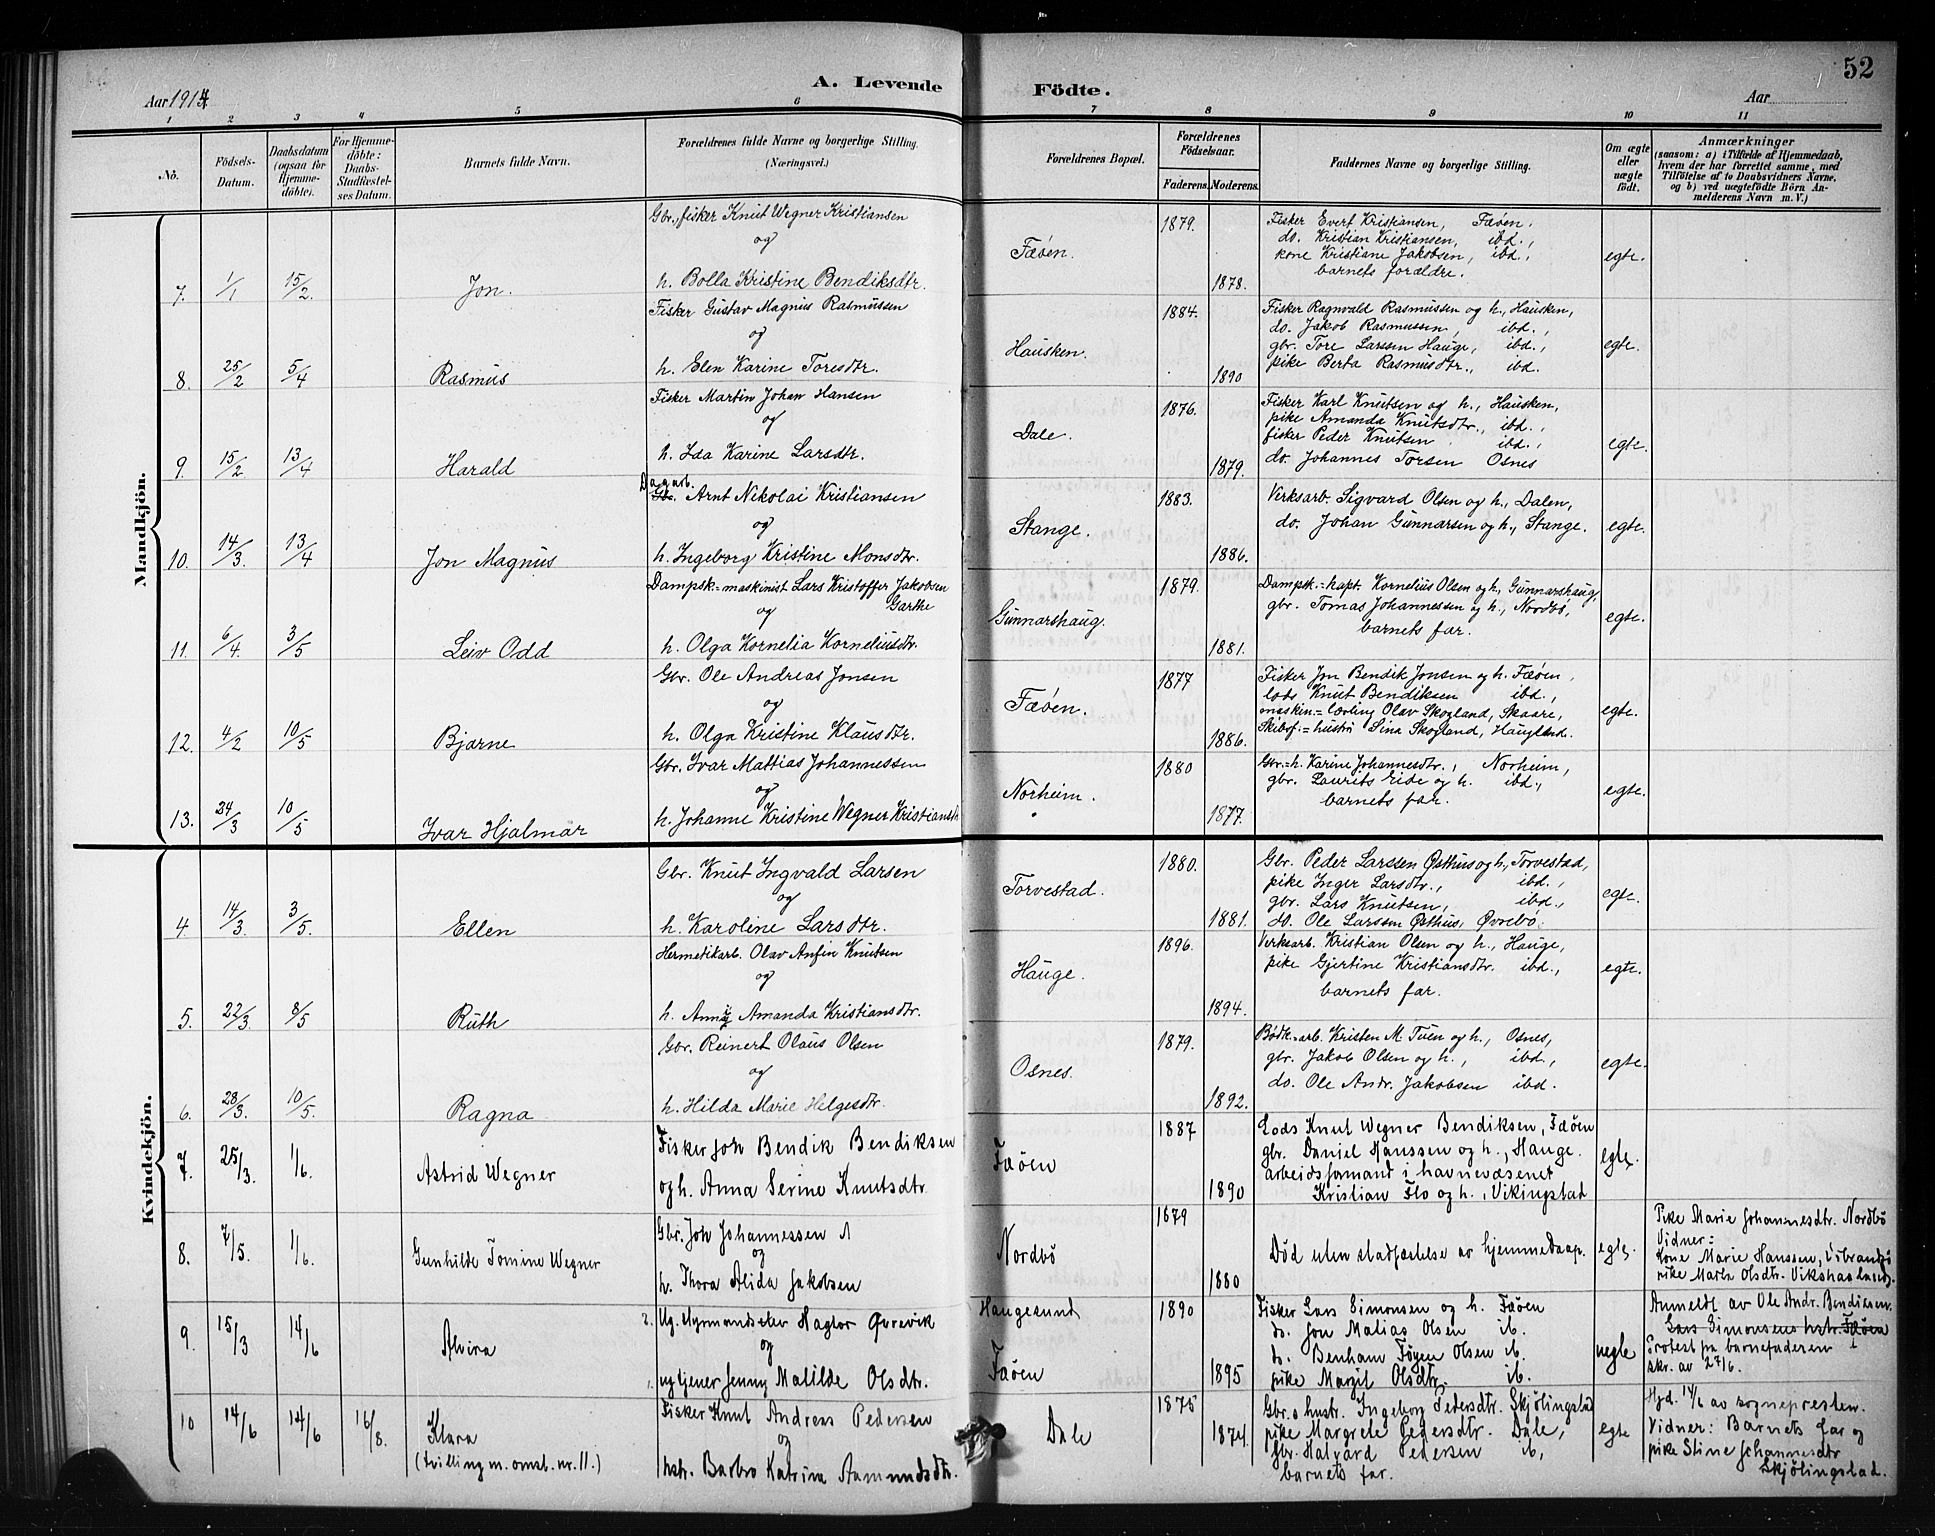 52
A. Levende Födte.
Aar 1914
Aar
1 2 3 4 5 6 7 8 9 10 11
No.
Födsels-Datum.
Daabsdatum (ogsaa for Hjemmedöbte).
For Hjemmedöbte: Daabs-Stadfæstelses Datum.
Barnets fulde Navn.
Forældrenes fulde Navne og borgerlige Stilling. (Næringsvei.)
Forældrenes Bopæl.
Forældrenes Födselsaar.
Faderens. Moderens.
Faddernes Navne og borgerlige Stilling.
Om ægte eller uægte født.
Anmærkninger
(saasom: a) i Tilfælde af Hjemmedaab, hvem der har forrettet samme, med Tilföielse af to Daabsvidners Navne, og b) ved uægtefödte Börn Anmelderens Navn m. V.)
Mandkjön.
7. 1/1 15/2. Jon.
Gbr., fisker Knut Wegner Kristiansen
og
h. Bolla Kristine Bendiksdtr.
Fæøen. 1879. 1878.
Fisker Evert Kristiansen, Fæøen,
do. Kristian Kristiansen, ibd.,
kone Kristiane Jakobsen, ibd.,
barnets forældre.
egte.
8. 25/2 5/4 Rasmus
Fisker Gustav Magnus Rasmussen
og
h. Elen Karine Toresdtr.
Hausken. 1884. 1890
Fisker Ragnvald Rasmussen og h., Hausken,
do. Jakob Rasmussen, ibd.,
gbr. Tore Larssen Hauge, ibd.,
pike Berta Rasmusdtr., ibd.
egte.
9. 15/2 13/4 Harald
Fisker Martin Johan Hansen
og
h. Ida Karine Larsdtr.
Dale. 1876. 1879.
Fisker Karl Knutsen og h., Hausken,
pike Amanda Knutsdtr., ibd.,
fisker Peder Knutsen ibd.,
do. Johannes Torsen Osnes
egte.
10. 14/3. 13/4 Jon Magnus
Dagarb.
Gbr. Arnt Nikolai Kristiansen
og
h. Ingeborg Kristine Monsdtr.
Stange. 1883. 1886.
Verksarb. Sigvard Olsen og h., Dalen,
do. Johan Gunnarsen og h., Stange.
egte.
11. 6/4. 3/5 Leiv Odd
Dampsk.=maskinist Lars Kristoffer Jakobsen
Garthe
og
h. Olga Kornelia Korneliusdtr.
Gunnarshaug. 1879. 1881.
Dampsk.=kapt. Kornelius Olsen og h., Gunnarshaug,
gbr. Tomas Johannessen og h., Nordbø,
barnets far.
egte.
12. 4/2 10/5 Bjarne
Gbr. Ole Andreas Jonsen
og
h. Olga Kristine Klausdtr.
Fæøen. 1877 1886.
Fisker Jon Bendik Jonsen og h. Fæøen,
lods Knut Bendiksen ibd.,
maskin=lærling Olav Skogland, Skaare,
Skibsf.=hustru Sina Skogland, Haugland.
egte.
13. 24/3 10/5 Ivar Hjalmar
Gbr. Ivar Mattias Johannessen
og
h. Johanne Kristine Wegner Kristiansdt
Norheim. 1880 1877.
Gbr.=h. Karine Johannesdtr., Norheim,
gbr. Laurits Eide og h. ibd.,
barnets far.
egte.
Kvindekjön.
4. 14/3. 3/5. Ellen
Gbr. Knut Ingvald Larsen
og
h. Karoline Larsdtr.
Torvestad. 1880. 1881.
Gbr. Peder Larssen Østhus og h., Torvestad,
pike Inger Larsdtr., ibd.,
gbr. Lars Knutsen, ibd.,
do. Ole Larssen Østhus, Øvrebø.
egte.
5. 22/3. 8/5 Ruth
Hermetikarb. Olav Anfin Knutsen
og
h. Anna Amanda Kristiansdtr.
Hauge. 1896. 1894.
Verksarb. Kristian Olsen og h., Hauge,
pike Gjertine Kristiansdtr. ibd.,
barnets far.
egte.
6. 28/3. 10/5. Ragna
Gbr. Reinert Olaus Olsen
og
h. Hilda Marie Helgesdtr.
Osnes. 1879. 1892.
Bødk.arb. Kristen M. Tuen og h., Osnes,
gbr. Jakob Olsen og h., ibd.,
do. Ole Andr. Jakobsen ibd.
egte.
7. 25/3. 1/6. Astrid Wegner
Fisker Joh Bendik Bendiksen
og h. Anna Serine Knutsdtr.
Fæöen 1887 1890
Lods Knut Wegner Bendiksen, Fæøen
gbr. Daniel Hanssen og h., Hauge.
arbeidsformand i havnevæsenet
Kristian Flo og h., Vikingstad
egte.
8. 7/5. 1/6. Gunhilde Tomine Wegner
Gbr. Joh Johannessen
og
h. Thora Alida Jakobsen
Nordbö 1879 1880
Död uten stadfæstelse av hjemmedaap.
egte.
Pike Marie Johannesdtr. Nordbö
Vidner:
Kone Marie Hanssen,
pike Marta Olsdtr. Vikshasland.
9 15/3 14/6 Alvira
2. Ug. Hagtor Øvrevik
og
1. ug tjener Jenny Matilde Olsdtr.
Haugesund
Fæöen
1890 1895
Fisker Lars Simonsen og h. Fæöen
do. Jon Matias Olsen ib.
do. Benham Tøgen Olsen ib.
pike Margit Olsdtr. ib.
uegte
Anmeldt av Ole Andr. Bendiksen.
Lars Simonsens hstr. Fæöen
Protest fra barnefaderen i
skr. av 27/6.
10 14/6 14/6 16/8. Klara
(tvilling m. omst. nr. 11.)
Fisker Knut Andreas Pedersen
og
hstr. Barbro Katrina Aamundsdtr.
Dale 1875 1874.
Gbr.s hustr. Ingeborg Pedersdtr. Skjölingstad
pike Margrete Pedersdtr. Dale,
Gbr. Halvard Pedersen ib,
barnets far.
egte
Hjd. 14/6 av sognepresten.
Vidner: Barnets far og
pike Stine Johannesdtr
Skjölingstad.